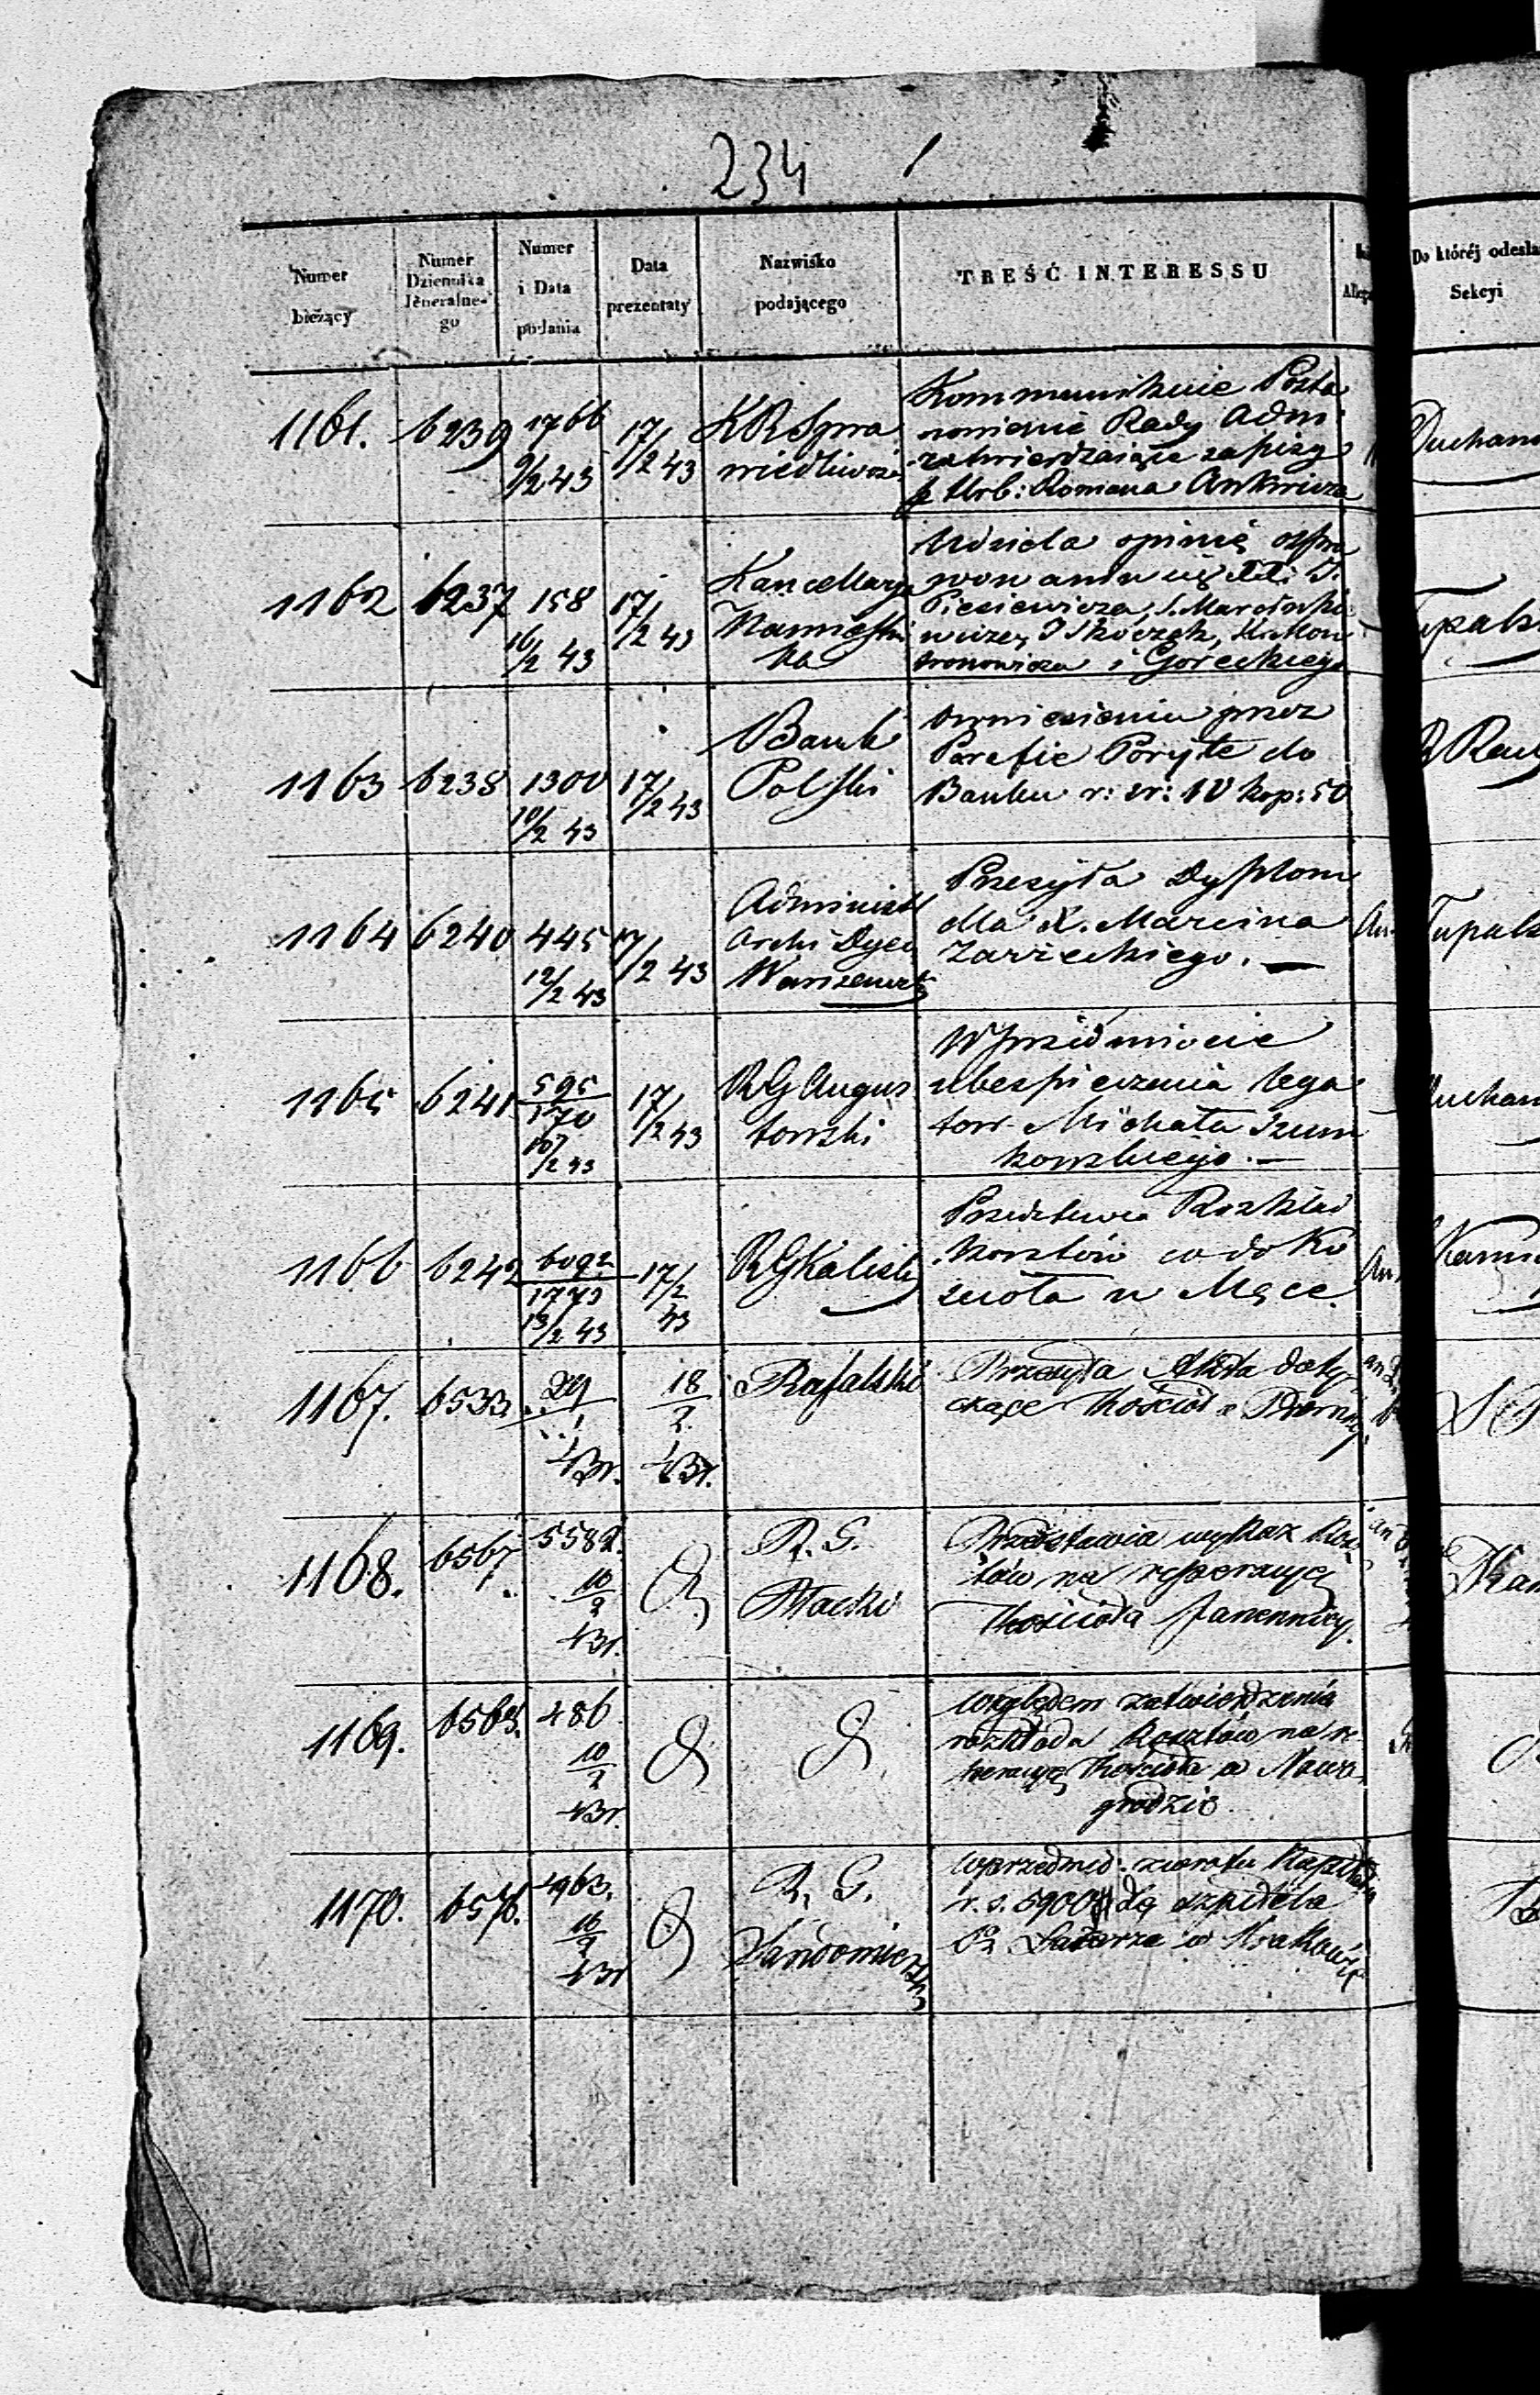 234
Numer bieżący
Numer Dziennika Jeneralnego
Numer i Data podania
Data prezentaty
Nazwisko podającego
TREŚĆ INTERESSU
Do któréj odesła
Sekcyi
1161. 6239 1766 9/2 43 17/2 43
KRSpra
wiedliwości
Kommunikuie Posta
nowienie Rady Adm:
zatwierdzaiące zapisy
p Hrb: Romana Ankwicza
Duchano
1162 6237 158 16/2 43 17/2 43
Kancellarya
Namiestni
ka
Udziela opinię o spra
wowaniu się
Piesiewicza,
i Goreckiego
Tupals
1163 6238 1300 10/2 43 17/2 43
Bank
Polski
O wniesieniu przez
Parafię Poryte do
Banku r: sr: 10 kop: 50
1164 6240 445 12/2 43 17/2 43
Administ
Archi Dyec
Warszewsk
Przesyła Dyplom
dla X. Marcina
Zarzeckiego. —
An
Tupals
1165 6241 595/170 10/2 43 17/2 43
RG Augus
towski
W przedmiocie
ubespieczenia lega
tow Michała Szum
kowskiego. —
uchan
1166 6242 6092/1773 13/2 43 17/2 43
RGKalisk
Przedstawia Rozkład
kosztów co do Ko
scioła w Męce.
An
1167. 6533 29/1 43r. 18/2 43r.
Rafalski
Przesyła Akta doty
czące Kościoł
1168. 6567. 5582. 10/2 43r.
R. G.
Płocki
Przedstawia wykaz kosz
tów na reperacyę
Kościoła
1169. 6565. 486 10/2 43r.
względem zatwierdzenia
rozkładu kosztów na re
peracyę Kościoła w Nowo
grodzie.
1170. 6576. 4963. 16/2 43r
R. G.
Sandomierski
w przedmio: zwrotu Kapitału
r. s. 5900 dla szpitala
Sgo Łazarza w Krakowie